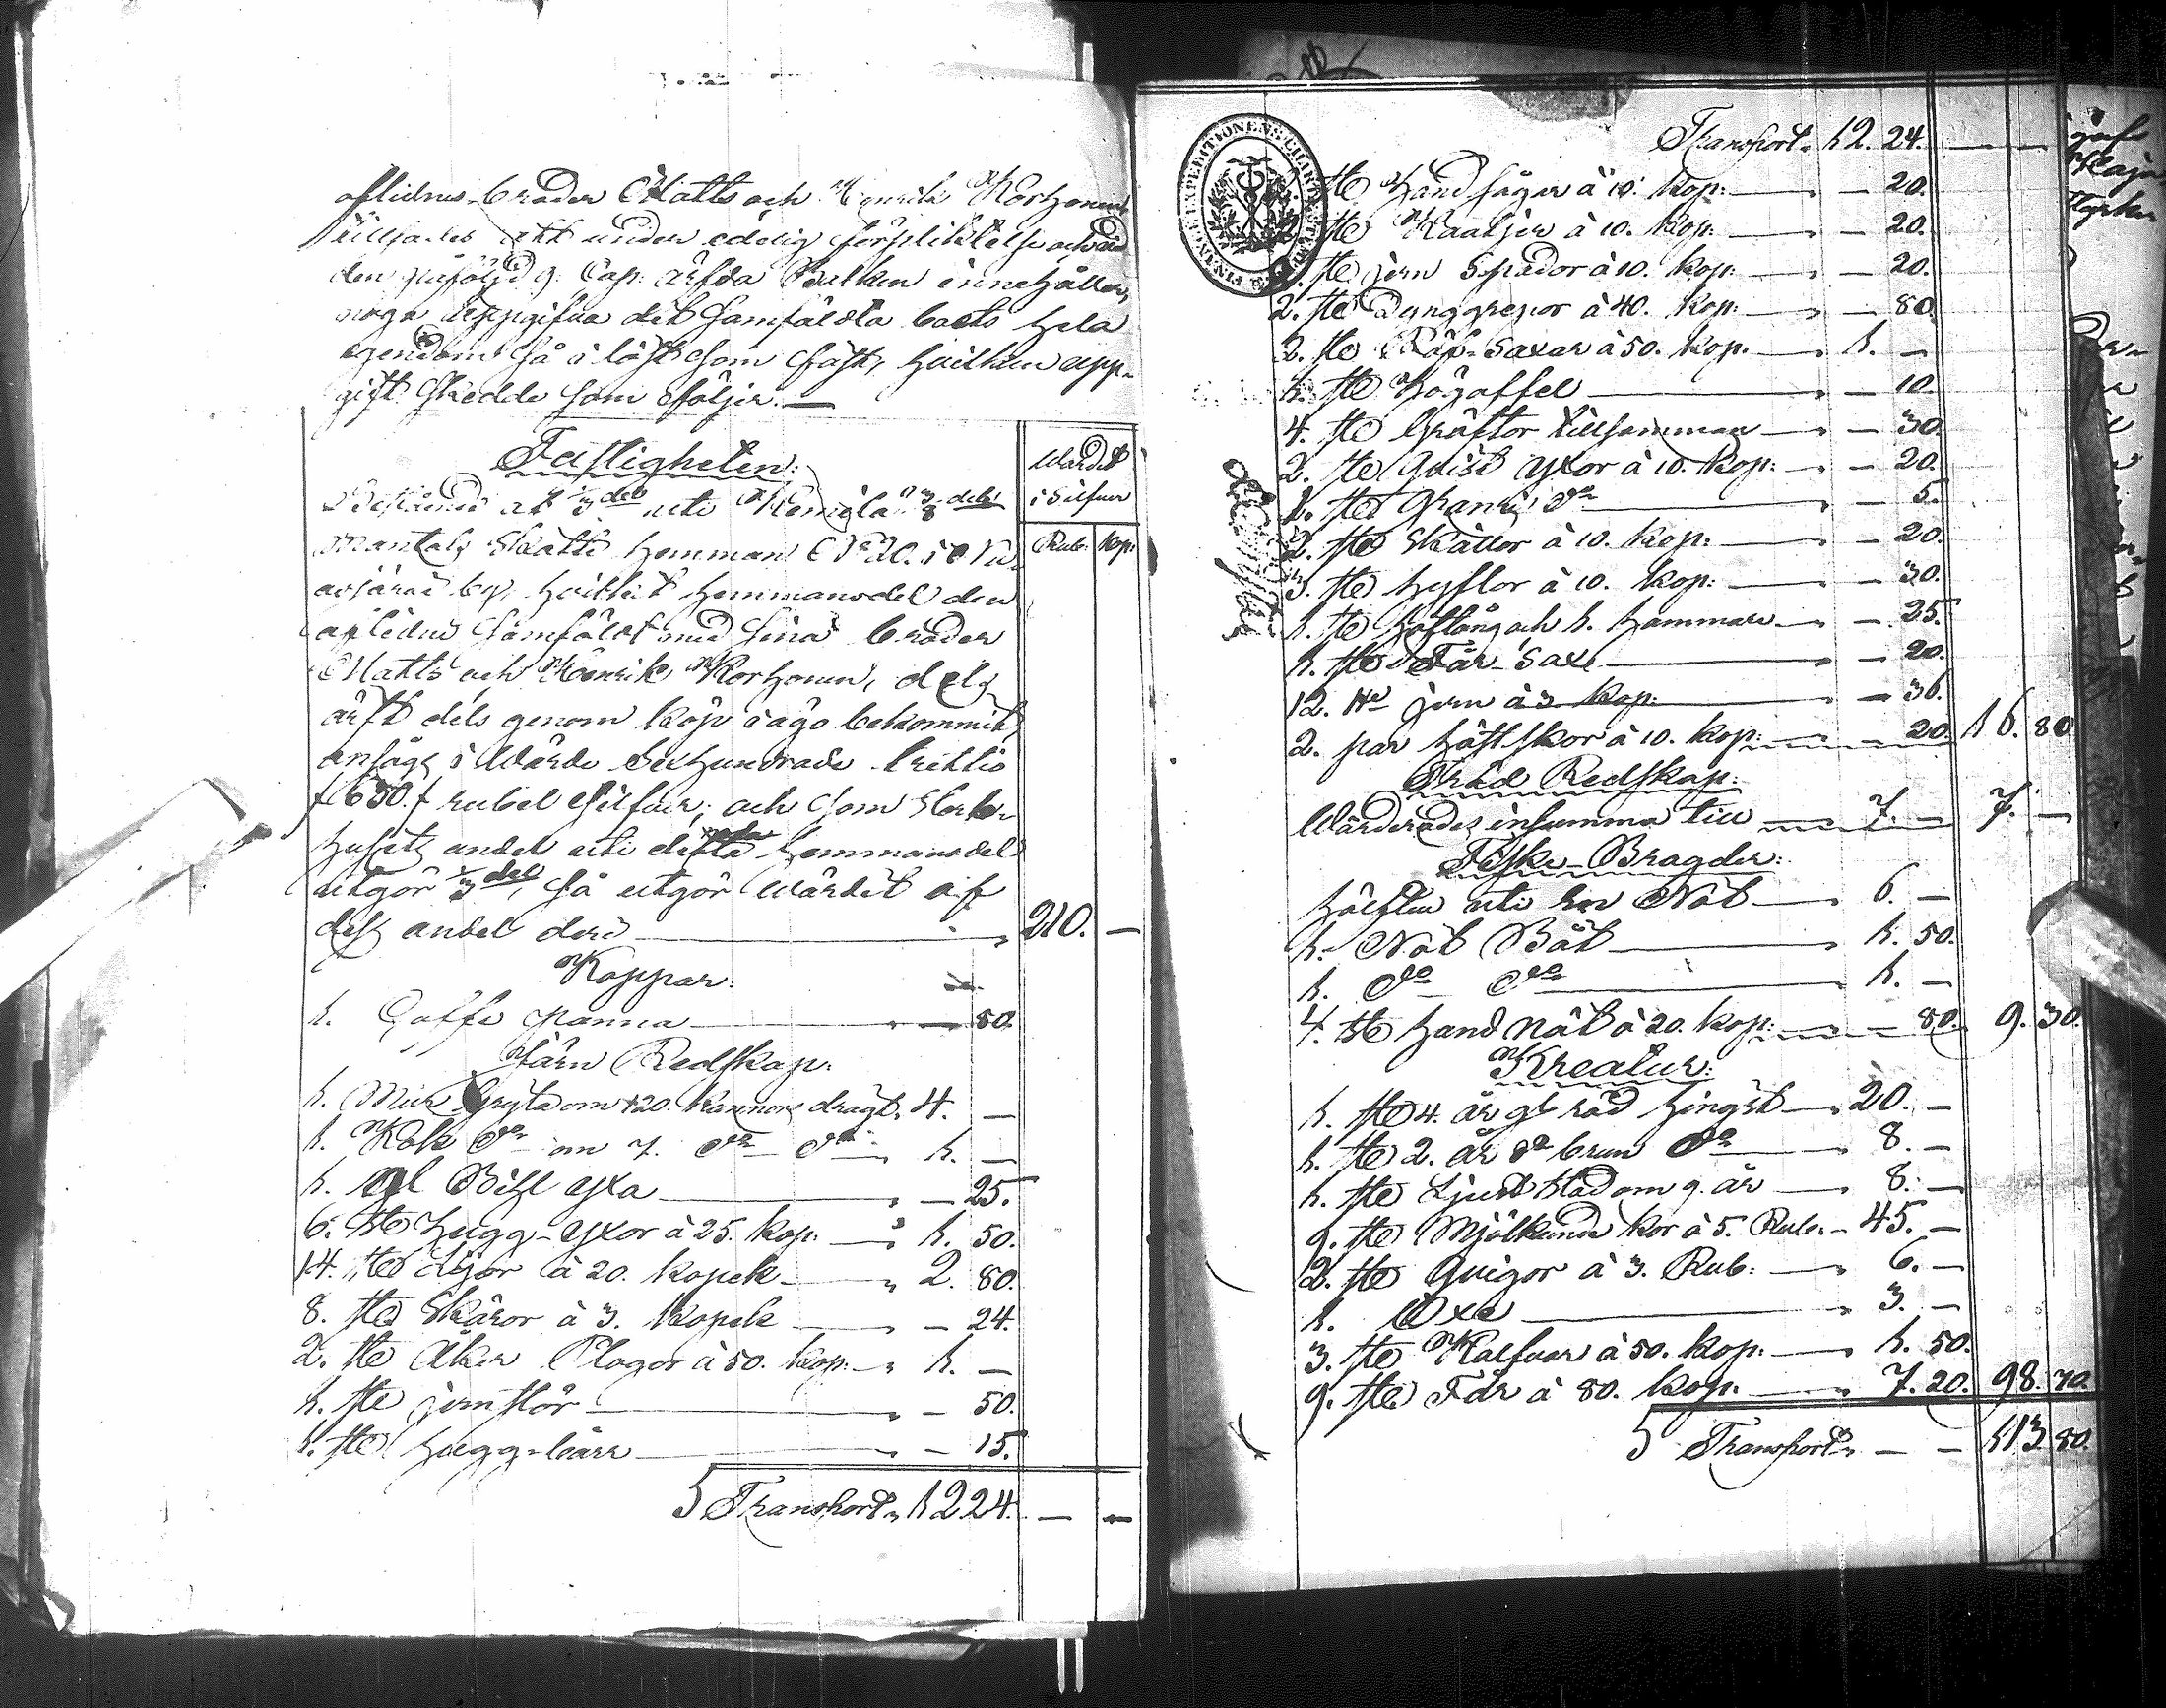 aflidnes bröder Matts och Henrik Korhonen,
tillsades att under edelig förpliktelse och
den påföljd 9. Cap: ärfda Balken innehåller,
noga uppgifva det samfälda boets hela
egendom så i löst som fast, hvilken upp-
gift skedde som följer.—
Fastigheten:
Wärdet
i Silfver
Bestående af 1/3 del uti Remela 3/8 dels
Rub: kop:
mantals Skatte hemman No 20. i
by, hvilket hemmansdel den
aflidne samfäldt med sina bröder
Matts och Henrik Korhonen, dels
ärft dels genom köp i ägo bekommit,
ansågs i Wärde Sexhundrade trettio
(630.) rubel silfver, och som Sterb-
husets andel uti detta hemmansdel
utgör 1/3 del, så utgör Wärdet af
dess andel deri — 210. —
Koppar:
1. Caffe panna — 80.
Järn Redskap:
1. Mur Gryta om 120. kannors dragt, 4. —
1. Kok do om 7. do do 1. —
1. gl Bihl yxa — 25.
6. st. hugg-yxor à 25. kop: 1. 50.
14. st. Lijor à 20. kopek — 2. 80.
8. st. Skäror à 3. kopek — 24.
2. st. Åker Plogor à 50. kop: 1. —
1. st. jernstör — 50.
1. st. hugg-
 — 15.
5 Transport 12 24. — —
Transport. 12. 24. — —
st. Handsågar à 10. kop: — 20.
st. à 10. kop: — 20.
st. jern Spador à 10. kop: — 20.
2. st. Dynggrepor à 40. kop: — 80.
2. st. Räf-Saxar à 50. kop. 1. —
1. st. Högaffel — 10.
4. st. Gräftor tillsamman — 30.
2. st. Quist yxor à 10. kop: — 20.
1. st. do — 5.
2. st. Skällor à 10. kop: — 20.
3. st. hyflor à 10. kop: — 30.
1. st. Hoftång och 1. hammare — 25.
1. st. Får-Sax — 20.
12. st. jern à 3. kop: — 36.
2. par hästskor à 10. kop: — 20. 16. 80.
Träd Redskap:
Wärderades insumma till — 7. — 7. —
Fiske-Bragder:
hälften uti en Nöt — 6. —
1. Nöt Båt — 1. 50.
1. do do — 1. —
4. st. hand nät à 20. kop: — 80. 9. 30.
Kreatur:
1. st. 4. år gl röd hingst — 20. —
1. st. 2. år do brun do — 8. —
1. st. Ljust Stod om 9. år — 8. —
9. st. Mjölkande kor à 5. Rub: — 45. —
2. st. Quigor à 3. Rub: — 6. —
1. Oxe — 3. —
3. st. Kalfvar à 50. kop: — 1. 50.
9. st. Får à 80. kop. — 7. 20. 98. 70.
5 Transport — — 113 80.